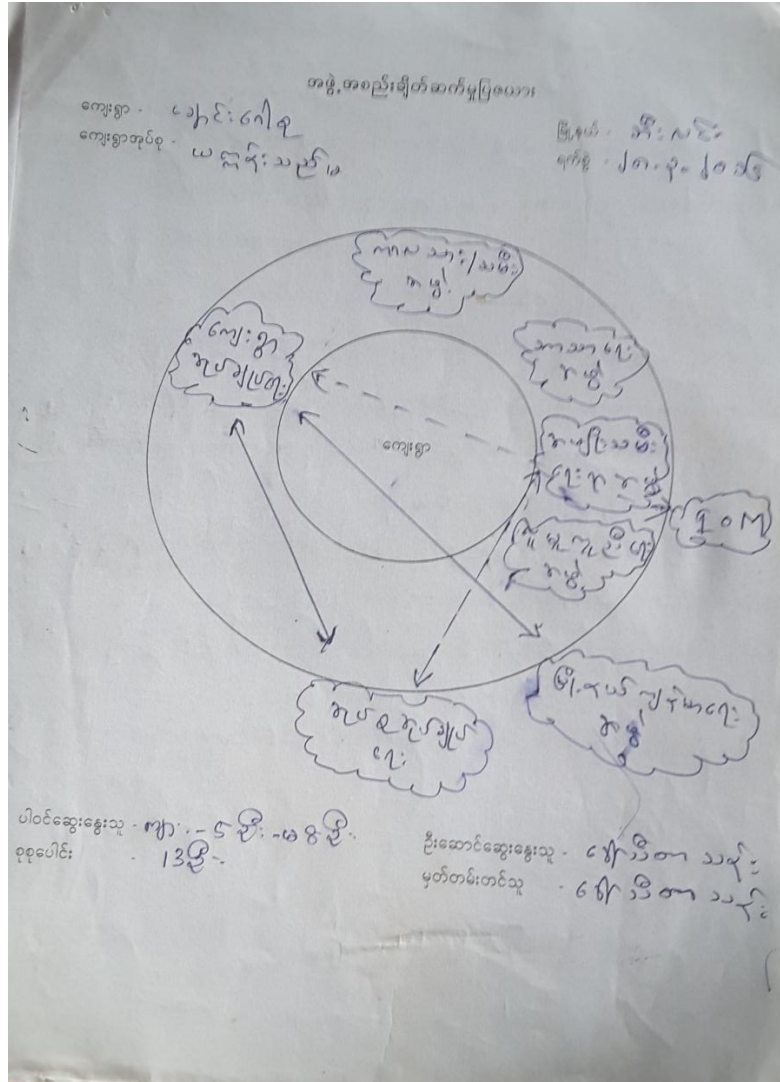 အဖွဲ့အစည်းချိတ်ဆက်မှုပြဇယား
ကျေးရွာ - ချောင်းခေါစု
ကျေးရွာအုပ်စု -
မြို့နယ် - ဘီးလင်း
ရက်စွဲ -
ကာလသား/သမီး
အဖွဲ့
ကျေးရွာ
အုပ်ချုပ်ရေး
ဘာသာရေး
အဖွဲ့
ကျေးရွာ
အမျိုးသမီး
ရေးရာအဖွဲ့
IOM
သူနာပြုဦးစီး
အဖွဲ့
အုပ်စုအုပ်ချုပ်
ရေး
မြို့နယ်ကျန်းမာရေး
အဖွဲ့
ပါဝင်ဆွေးနွေးသူ - ကျား - ၅ ဦး - မ ၈ ဦး
စုစုပေါင်း - 13ဦး
ဦးဆောင်ဆွေးနွေးသူ - ဒေါ်သီတာသန်း
မှတ်တမ်းတင်သူ - ဒေါ်သီတာသန်း